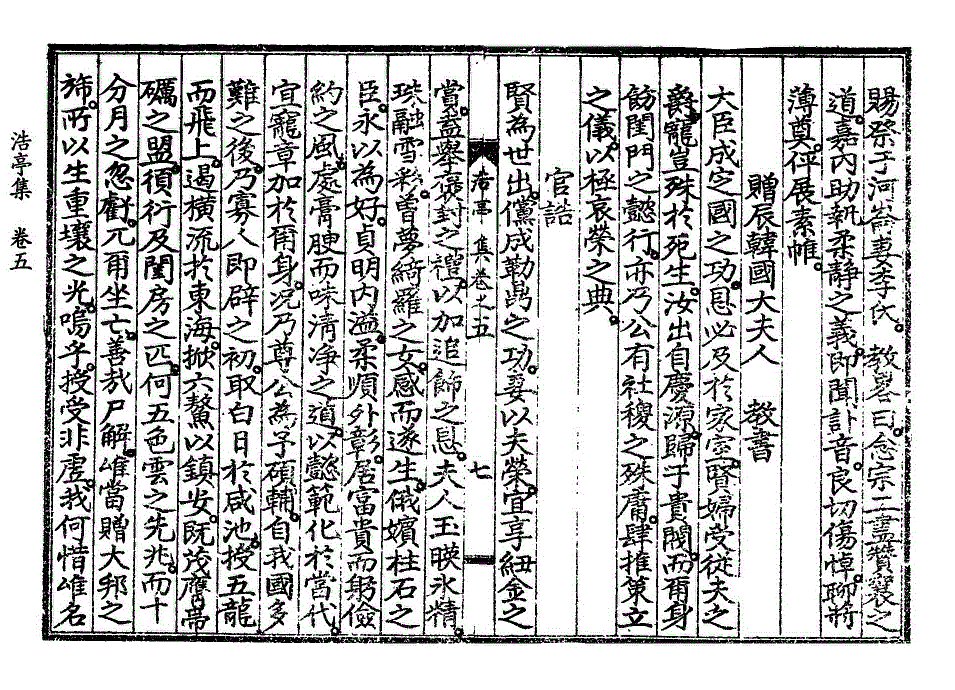 賜祭于河崙妻李氏 教畧曰念宗工盡贊襄之
道嘉內助執柔靜之義卽聞訃音良切傷悼聊將
薄奠伻展素帷
贈辰韓國大夫人 敎書
大臣成定國之功恩必及於家室賢婦受從夫之
爵寵豈殊於死生汝出自慶源歸于貴閥而爾身
飭閨門之懿行亦乃公有社稷之殊庸肆推策立
之儀以極哀榮之典
官誥
賢爲世出儻成勒鼎之功妻以夫榮宜享紐金之
賞盍擧褒封之禮以加追飾之恩夫人玉暎氷精
珠融雪彩曾夢綺羅之女感而遂生儀嬪柱石之
臣永以爲好貞明內溢柔順外彰居富貴而躬儉
約之風處膏腴而味淸淨之道以懿範化於當代
宜寵章加於爾身況乃尊公爲予碩輔自我國多
難之後乃寡人卽辟之初取白日於咸池授五龍
而飛上遏橫流於東海掀六鰲以鎭安旣茂膺帶
礪之盟須行及閨房之匹何五色雲之先兆而十
分月之忽虧兀爾坐亡善哉尸解雖當贈大邦之
斾所以生重壤之光嗚乎授受非虛我何惜雖名
浩亭集卷之五
七
浩亭集 卷五